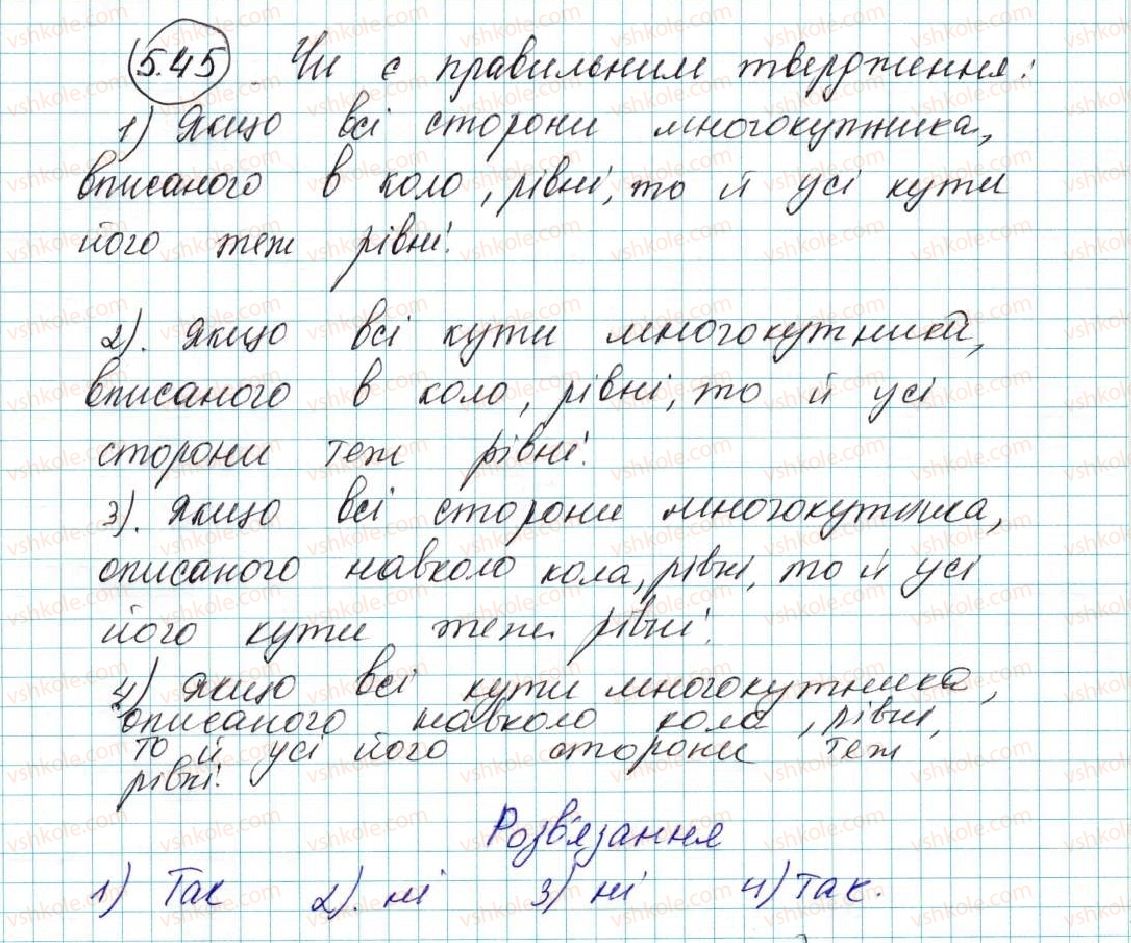 5.45. Чи є правильним твердження:
1) Якщо всі сторони многокутника,
вписаного в коло, рівні, то й усі кути
його теж рівні.
2). Якщо всі кути многокутника,
вписаного в коло, рівні, то й усі
сторони теж рівні.
3). Якщо всі сторони многокутника,
описаного навколо кола, рівні, то й усі
його кути теж рівні.
4) Якщо всі кути многокутника,
описаного навколо кола, рівні,
то й усі його сторони теж
рівні.
Розв'язання
1) Так 2). ні 3) ні 4) так.
vshkole.com